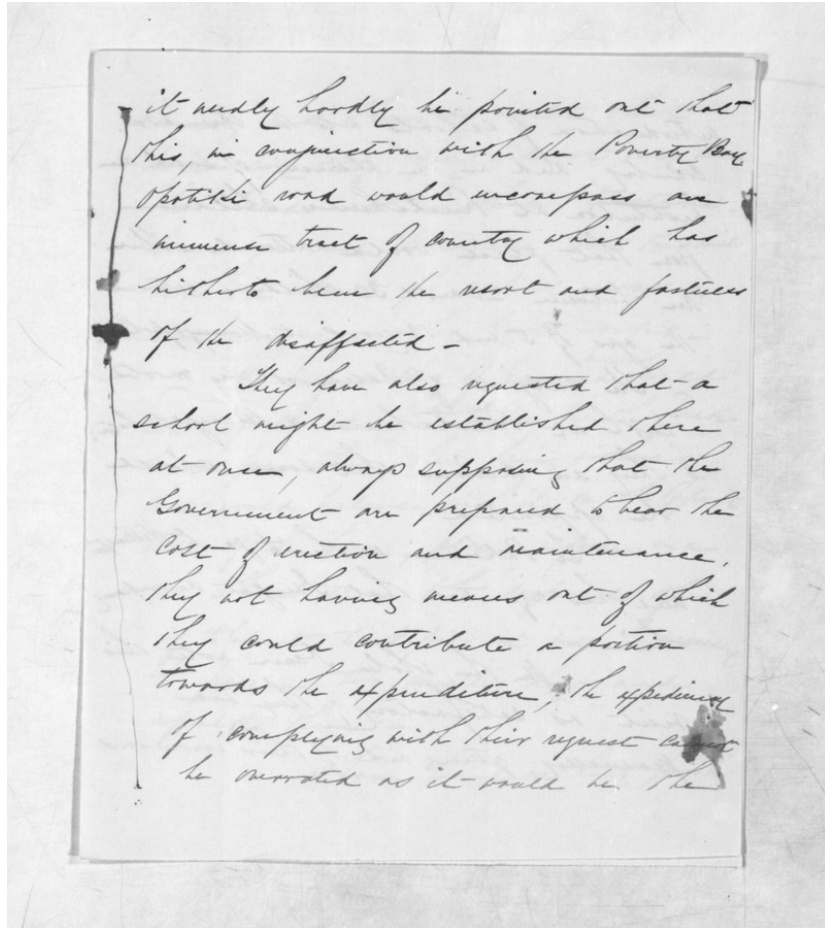 it needly hardly be pointed out that
this, in conjunction with the Poverty Bay
Opotiki road would encompass an
immense tract of country which has
hitherto been the resort and fastness
of the disaffected –
They have also requested that a
school might be established there
at once, always supposing that the
Government are prepared to bear the
cost of erection and maintenance,
they not having means out of which
they could contribute a portion
towards the expenditure, the expediency
of complying with their request cannot
be overrated as it would be the